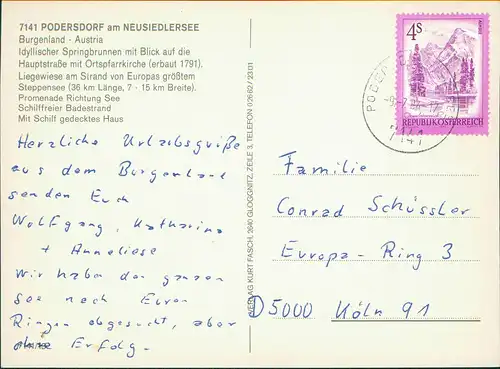 7141 PODERSDORF am NEUSIEDLERSEE
Burgenland - Austria
Idyllischer Springbrunnen mit Blick auf die
Hauptstraße mit Ortspfarrkirche (erbaut 1791).
Liegewiese am Strand von Europas größtem
Steppensee (36 km Länge, 7 - 15 km Breite).
Promenade Richtung See
Schilffreier Badestrand
Mit Schilf gedecktes Haus
Herzliche Urlaubsgrüße
aus dem Burgenland
senden Euch
Wolfgang, Katharina
+ Anneliese
Wir haben den ganzen
See nach Euren
Ringen abgesucht, aber
ohne Erfolg.
VERLAG KURT FASCHL, 2640 GLOGGNITZ, ZEILE 3, TELEFON 02662/2301
4S
REPUBLIK ÖSTERREICH
7141
Familie
Conrad Schüssler
Europa-Ring 3
D 5000 Köln 91